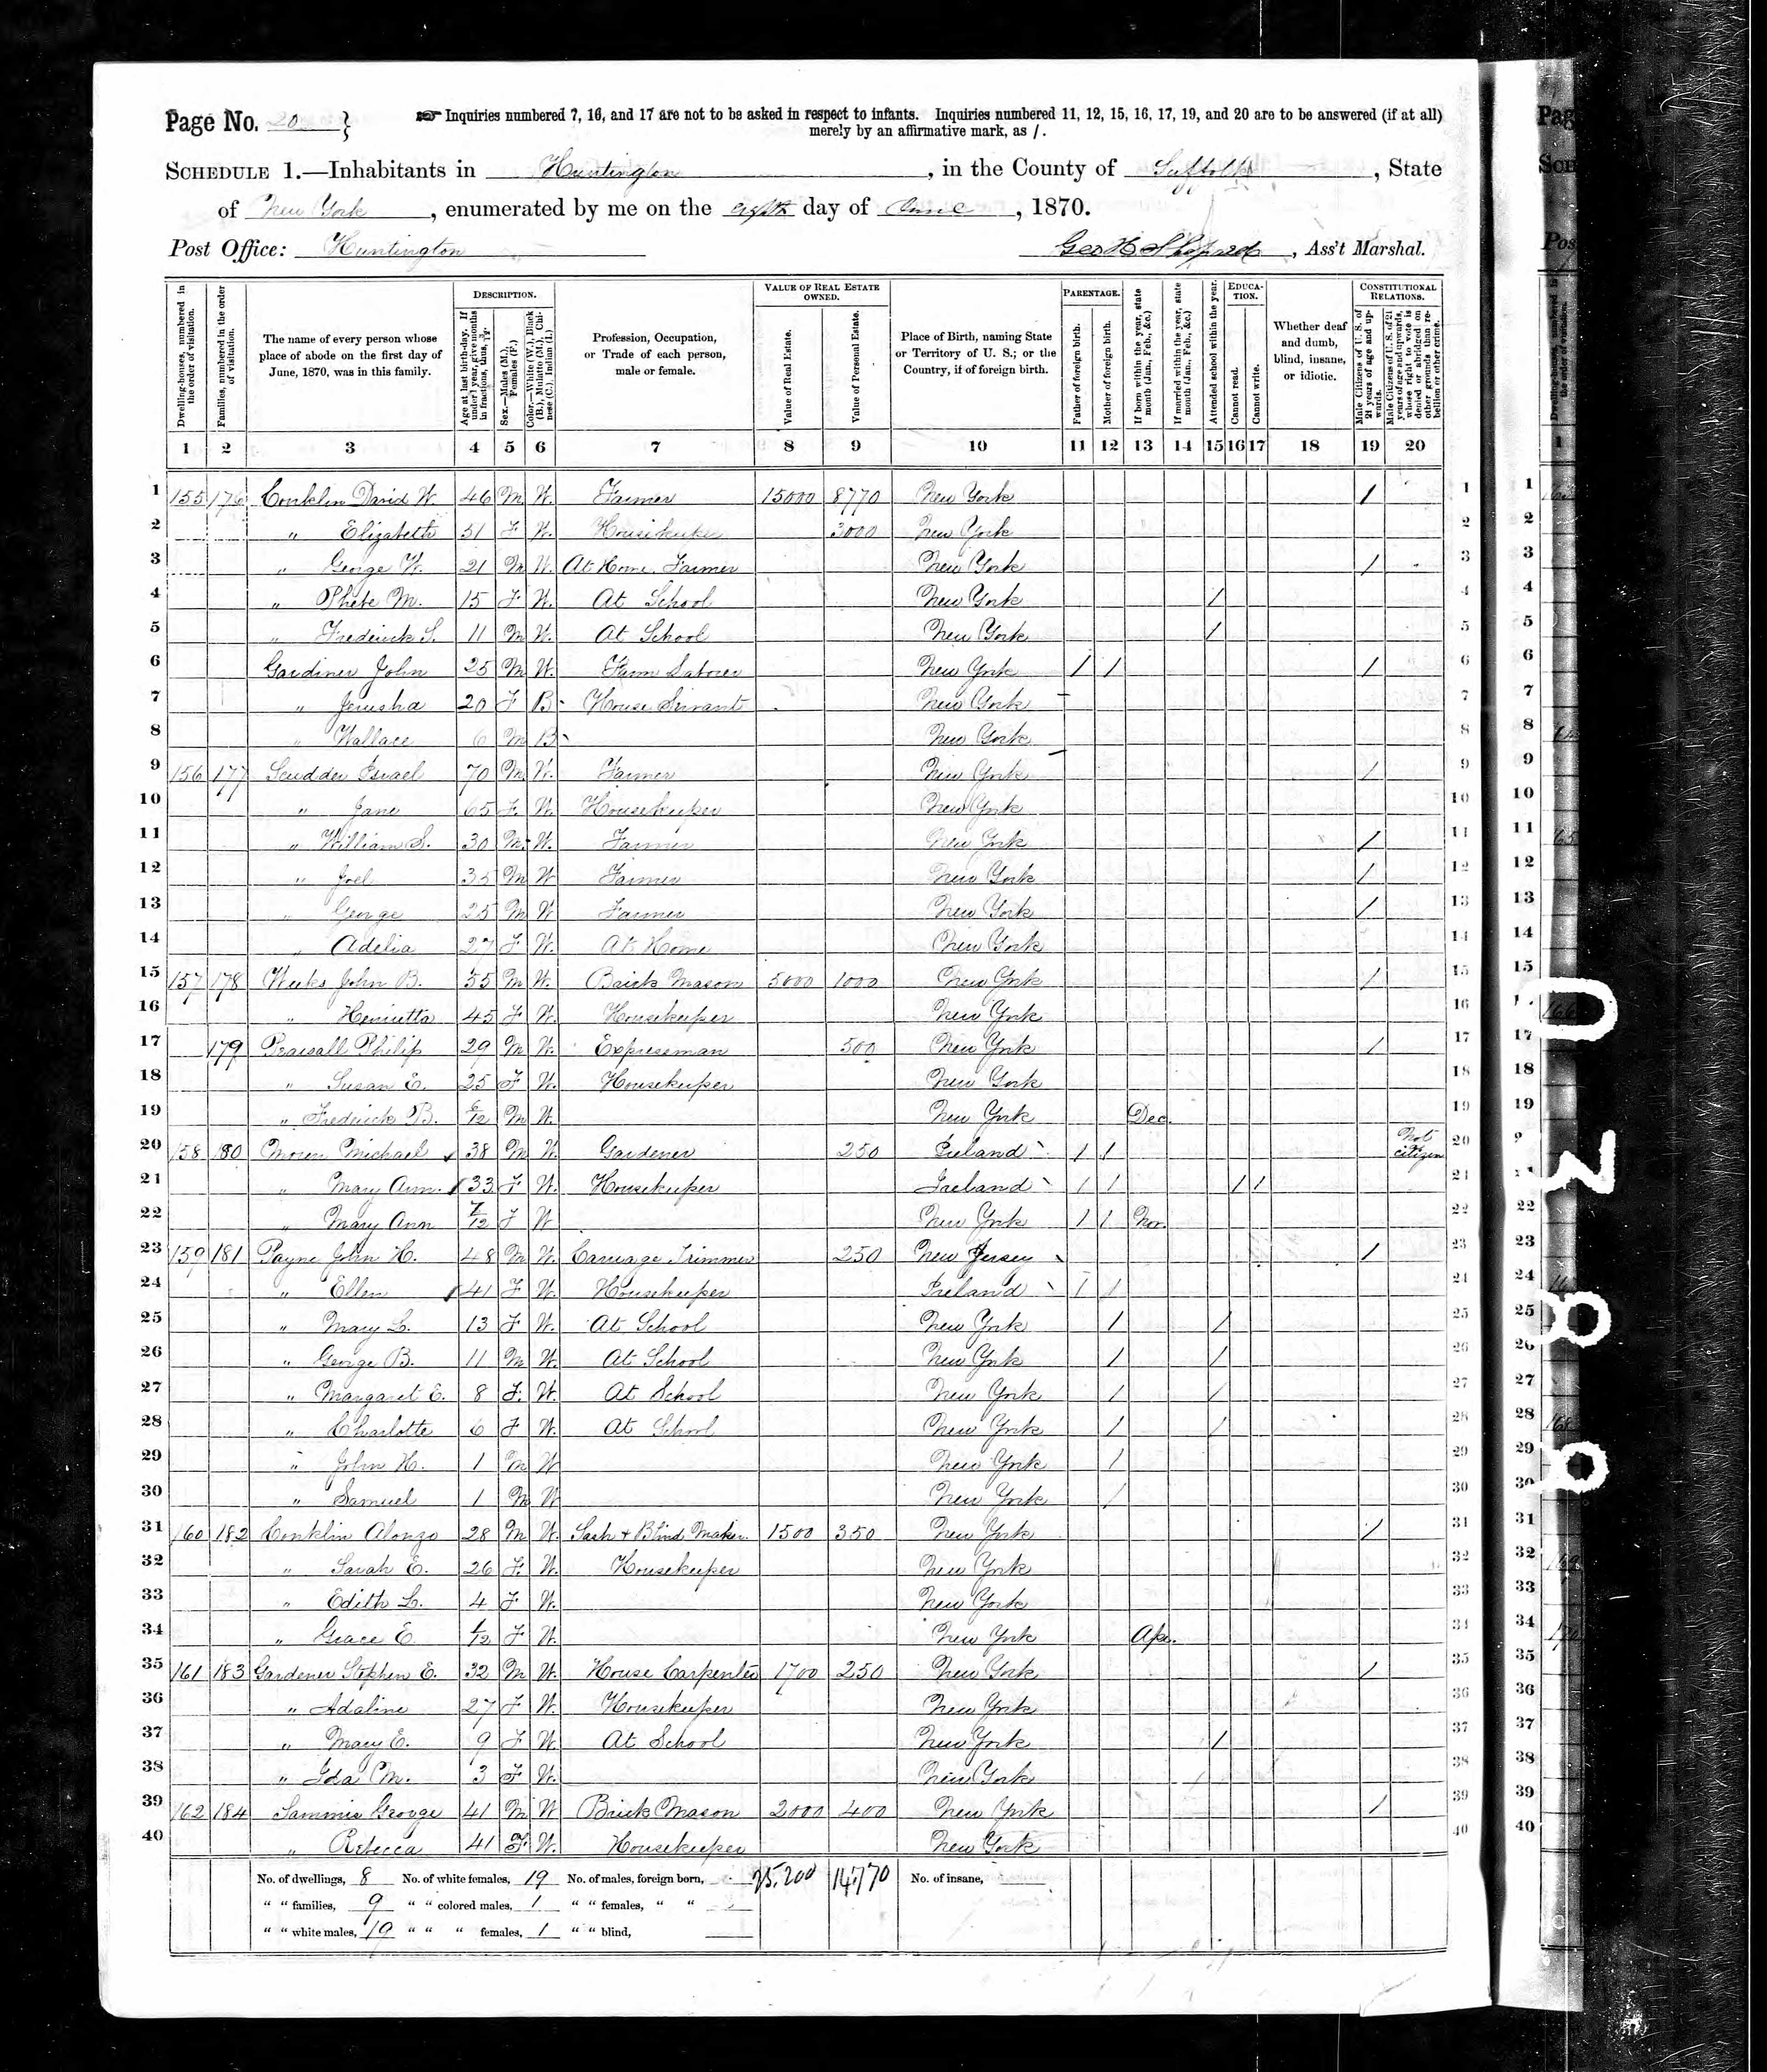 Page No. 20 }
☞ Inquiries numbered 7, 16, and 17 are not to be asked in respect to infants. Inquiries numbered 11, 12, 15, 16, 17, 19, and 20 are to be answered (if at all)
merely by an affirmative mark, as /.
SCHEDULE 1.—Inhabitants in Huntington, in the County of Suffolk, State
of New York, enumerated by me on the eighth day of June, 1870.
Post Office: Huntington Geo H Shepard, Ass't Marshal.
Dwelling-houses, numbered in the order of visitation.
Families, numbered in the order of visitation.
The name of every person whose place of abode on the first day of June, 1870, was in this family.
DESCRIPTION.
Age at last birth-day. If under 1 year, give months in fractions, thus, 3/12.
Sex.—Males (M.), Females (F.)
Color.—White (W.), Black (B.), Mulatto (M.), Chinese (C.), Indian (I.)
Profession, Occupation, or Trade of each person, male or female.
VALUE OF REAL ESTATE OWNED.
Value of Real Estate.
Value of Personal Estate.
Place of Birth, naming State or Territory of U. S.; or the Country, if of foreign birth.
PARENTAGE.
Father of foreign birth.
Mother of foreign birth.
If born within the year, state month (Jan., Feb., &c.)
If married within the year, state month (Jan., Feb., &c.)
Attended school within the year.
EDUCATION.
Cannot read.
Cannot write.
Whether deaf and dumb, blind, insane, or idiotic.
CONSTITUTIONAL RELATIONS.
Male Citizens of U. S. of 21 years of age and upwards.
Male Citizens of U. S. of 21 years of age and upwards, whose right to vote is denied or abridged on other grounds than rebellion or other crime.
1 2 3 4 5 6 7 8 9 10 11 12 13 14 15 16 17 18 19 20
1 155 176 Conklin David W. 46 M W. Farmer 15000 8770 New York / 1
2 " Elizabeth 51 F W. Housekeeper 3000 New York 2
3 " George W. 21 M W. At Home Farmer New York / 3
4 " Phebe M. 15 F W. At School New York / 4
5 " Frederick S. 11 M W. At School New York / 5
6 Gardiner John 25 M W. Farm Laborer New York / / / 6
7 " Jerusha 20 F B House Servant New York 7
8 " Wallace 6 M B New York 8
9 156 177 Scudder Israel 70 M W. Farmer New York / 9
10 " Jane 65 F. W. Housekeeper New York 10
11 " William S. 30 M. W. Farmer New York / 11
12 " Joel 35 M W Farmer New York / 12
13 " George 25 M W Farmer New York / 13
14 " Adelia 27 F W. At Home New York 14
15 157 178 Weeks John B. 55 M W. Brick Mason 5000 1000 New York / 15
16 " Henrietta 45 F W. Housekeeper New York 16
17 179 Praisall Philip 29 M W. Expressman 500 New York / 17
18 " Susan E. 25 F W. Housekeeper New York 18
19 " Frederick B. 6/12 M W. New York Dec. 19
20 158 180 Moren Michael 38 M W. Gardener 250 Ireland / / Not citizen 20
21 " Mary Ann. 33 F W. Housekeeper Ireland / / / / 21
22 " Mary Ann 7/12 F W New York / / Nov. 22
23 159 181 Payne John H. 48 M W. Carriage Trimmer 250 New Jersey / 23
24 " Ellen 41 F W. Housekeeper Ireland / / 24
25 " Mary L. 13 F W. At School New York / / 25
26 " George B. 11 M W. At School New York / / 26
27 " Margaret E. 8 F. W. At School New York / / 27
28 " Charlotte 6 F W. At School New York / / 28
29 " John H. 1 M W New York / 29
30 " Samuel 1 M W New York / 30
31 160 182 Conklin Alonzo 28 M W. Sash + Blind Maker 1500 350 New York / 31
32 " Sarah E. 26 F. W. Housekeeper New York 32
33 " Edith L. 4 F W. New York 33
34 " Grace E. 1/12 F W. New York Apr. 34
35 161 183 Gardener Stephen E. 32 M W. House Carpenter 1700 250 New York / 35
36 " Adaline 27 F W. Housekeeper New York 36
37 " Mary E. 9 F W. At School New York / 37
38 " Ida M. 3 F W. New York 38
39 162 184 Sammis George 41 M W Brick Mason 2000 400 New York / 39
40 " Rebecca 41 F. W. Housekeeper New York 40
No. of dwellings, 8 No. of white females, 19 No. of males, foreign born, 25,200 14,770 No. of insane,
" " families, 9 " " colored males, 1 " " females, " "
" " white males, 19 " " " females, 1 " " blind,